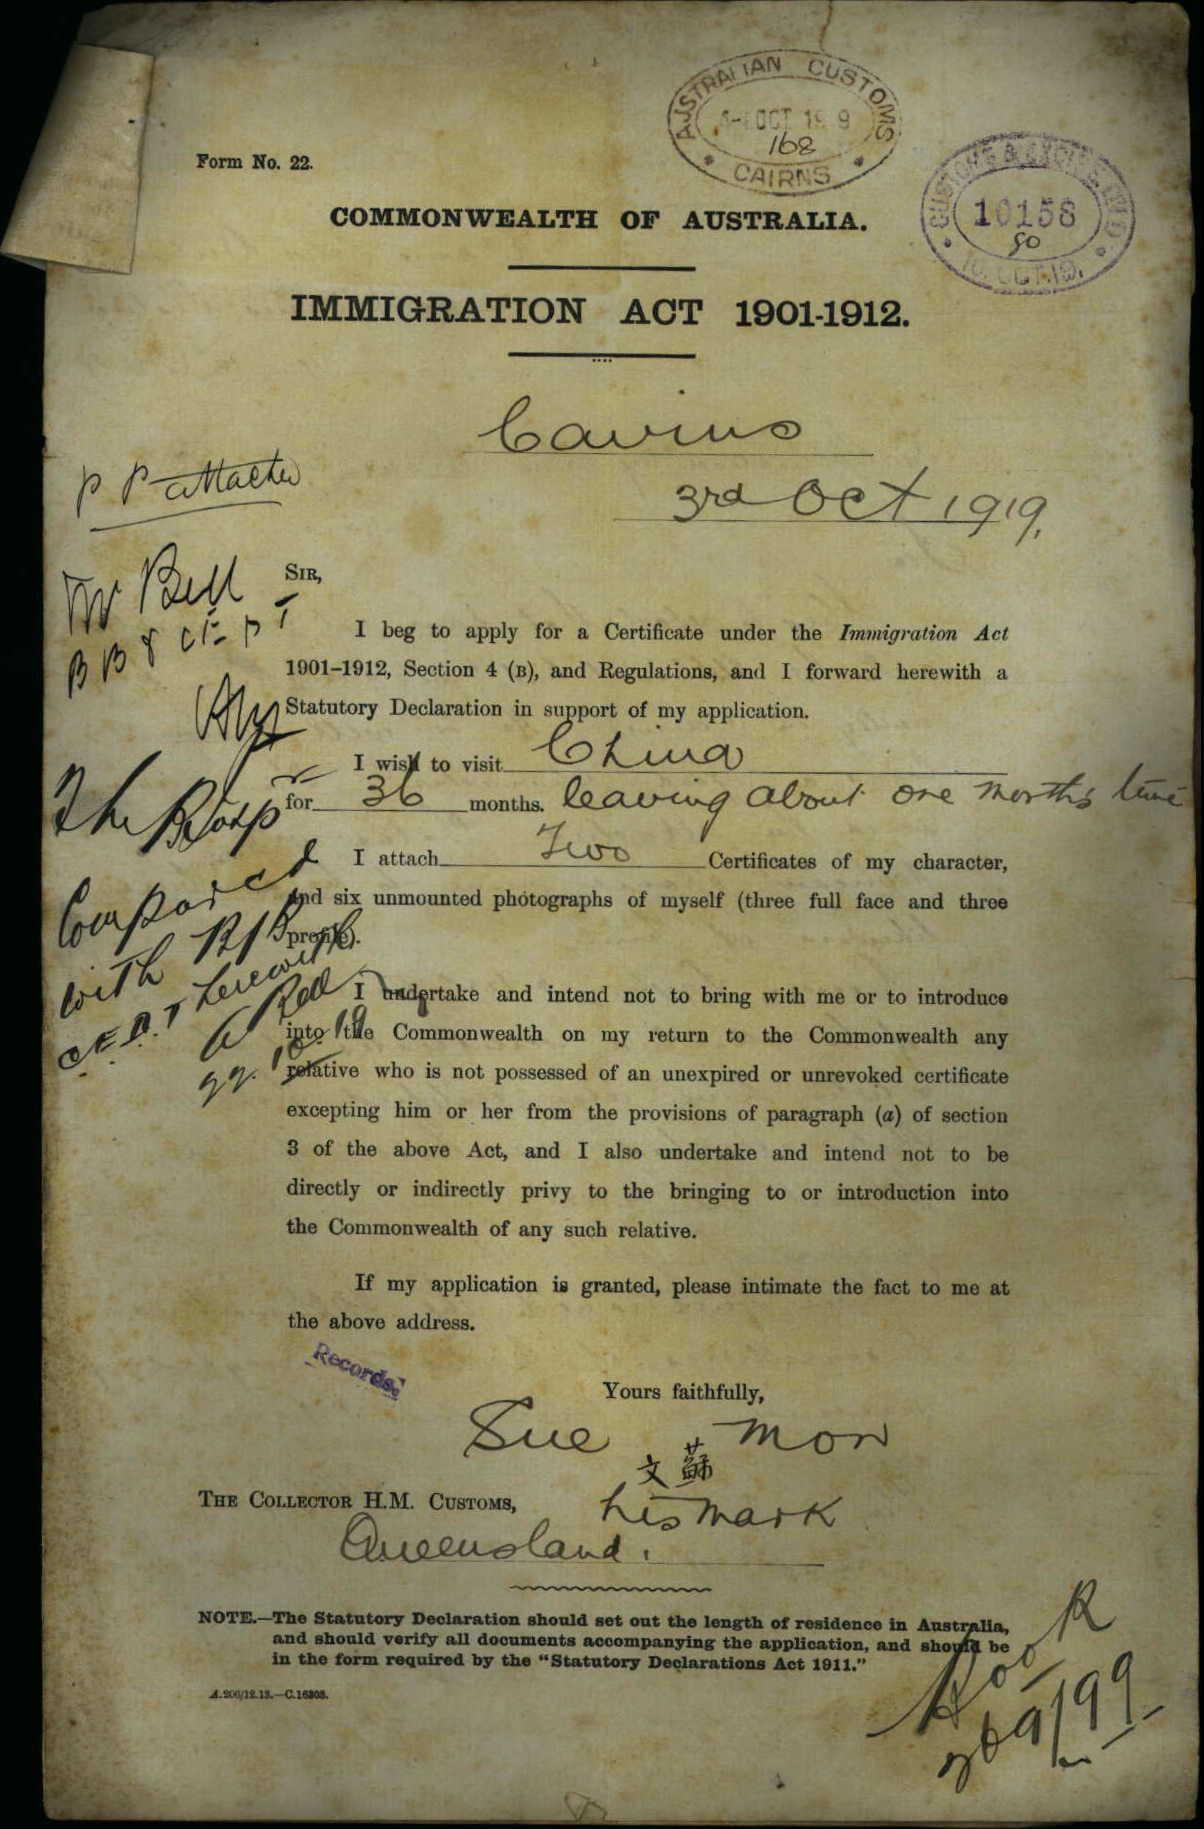 AUSTRALIAN CUSTOMS
OCT 19 9
168
CAIRNS
CUSTOMS & EXCISE
10158
90
10 OCT. 19.
Form No. 22.
COMMONWEALTH OF AUSTRALIA.
IMMIGRATION ACT 1901-1912.
Cairns
3rd Oct 1919.
P P attached
Mr Bell
SIR,
I beg to apply for a Certificate under the Immigration Act
1901–1912, Section 4 (B), and Regulations, and I forward herewith a
Statutory Declaration in support of my application.
I wish to visit China
for 36 months. leaving about one months time
I attach Two Certificates of my character,
and six unmounted photographs of myself (three full face and three
profile).
Compared
with
herewith
A Bell
I undertake and intend not to bring with me or to introduce
into the Commonwealth on my return to the Commonwealth any
relative who is not possessed of an unexpired or unrevoked certificate
excepting him or her from the provisions of paragraph (a) of section
3 of the above Act, and I also undertake and intend not to be
directly or indirectly privy to the bringing to or introduction into
the Commonwealth of any such relative.
If my application is granted, please intimate the fact to me at
the above address.
Records.
Yours faithfully,
Sue Mon
文 蘇
his mark
THE COLLECTOR H.M. CUSTOMS,
Queensland.
NOTE.—The Statutory Declaration should set out the length of residence in Australia,
and should verify all documents accompanying the application, and should be
in the form required by the "Statutory Declarations Act 1911."
A.206/12.13.—C.16303.
Book
269/99